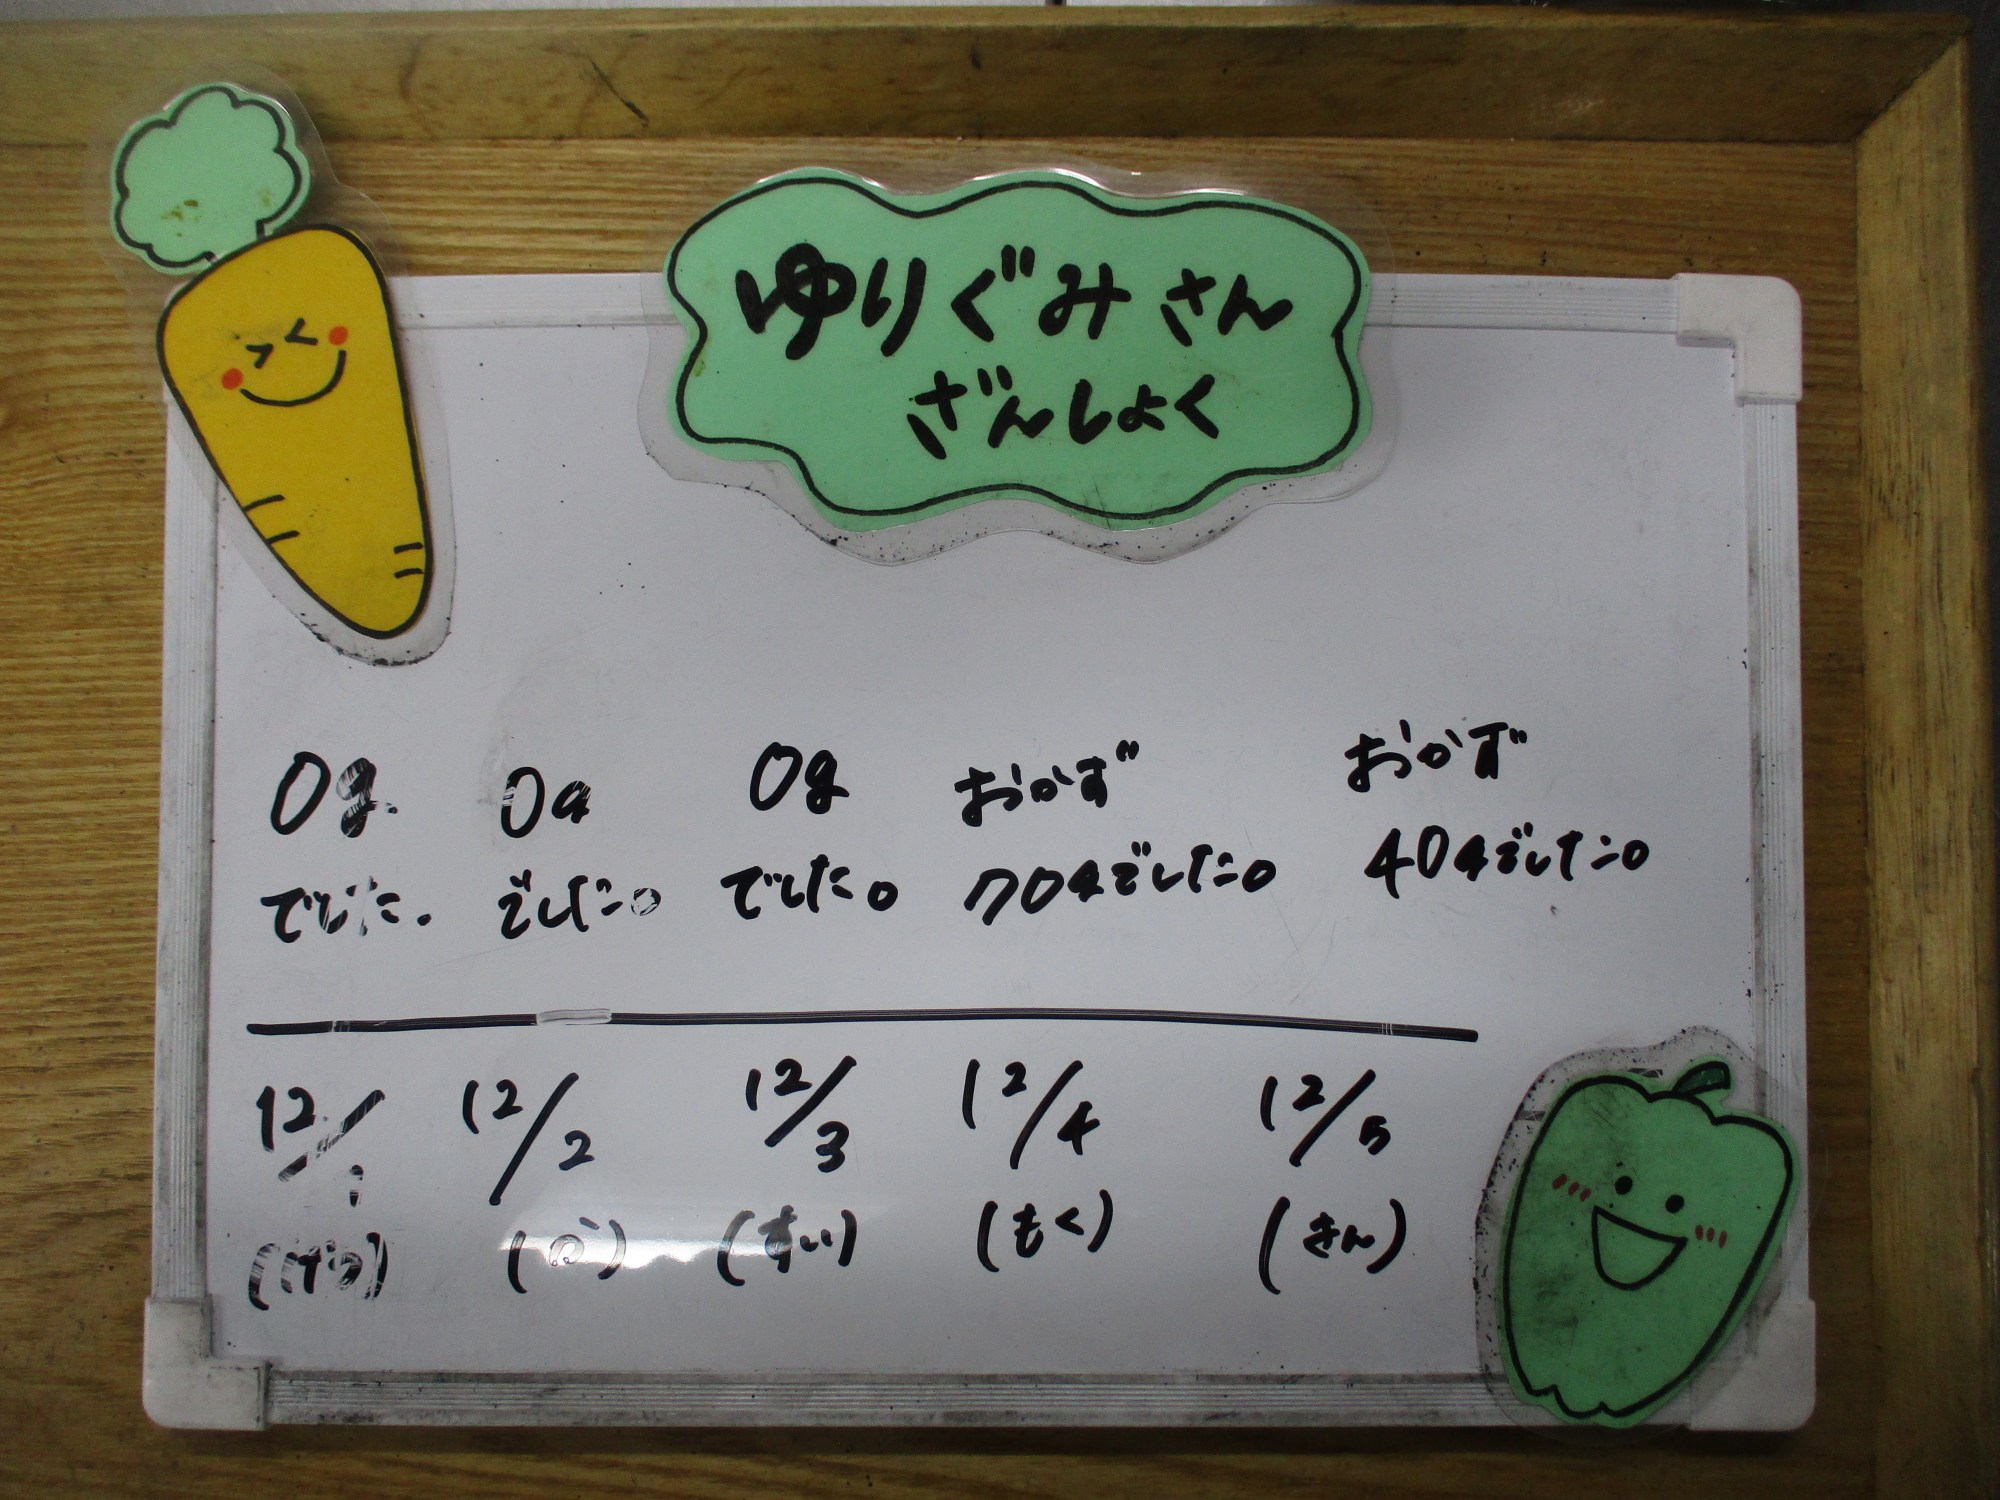 ゆりぐみさん
ざんしょく
0g
でした.
0g
でした。
0g
でした。
おかず
70gでした。
おかず
40gでした。
12/1
(げつ)
12/2
(か)
12/3
(すい)
12/4
(もく)
12/5
(きん)